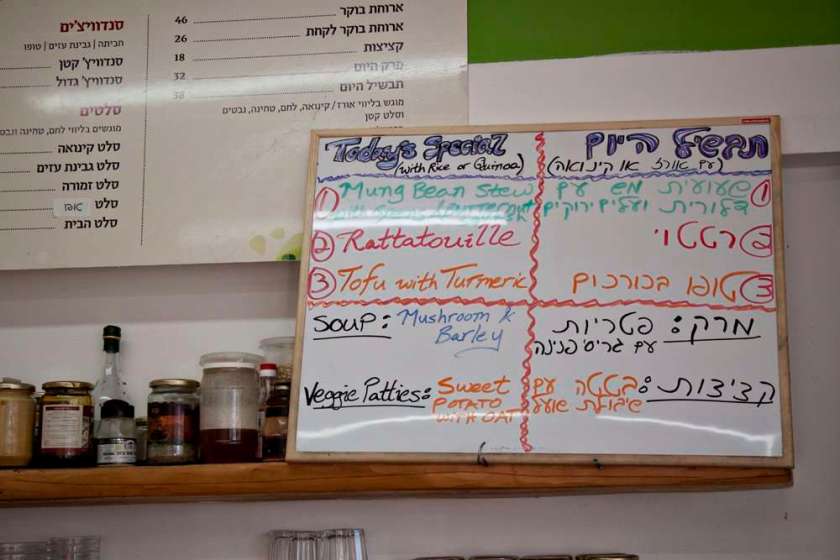 סנדוויצ'ים
חביתה | גבינת עזים | טופו
סנדוויץ' קטן
סנדוויץ' גדול
סלטים
מוגשים בליווי לחם, טחינה
סלט קינואה
סלט גבינת עזים
סלט זמורה
סלט
סלט הבית
ארוחת בוקר 46
ארוחת בוקר לקחת 26
קציצות 18
מרק היום 32
תבשיל היום 38
מוגש בליווי אורז / קינואה, לחם, טחינה, נבטים
וסלט קטן
Today's Special
(with Rice or Quinoa)
① Mung Bean Stew
② Rattatouille
③ Tofu with Turmeric
Soup: Mushroom &
Barley
Veggie Patties: Sweet
Potato
with OAT
תבשיל היום
(עם אורז או קינואה)
① שעועית מש עם
דלורית ועלים ירוקים
② רטטוי
③ טופו בכורכום
מרק: פטריות
עם גריס פנינה
קציצות: בטטה עם
שיבולת שועל